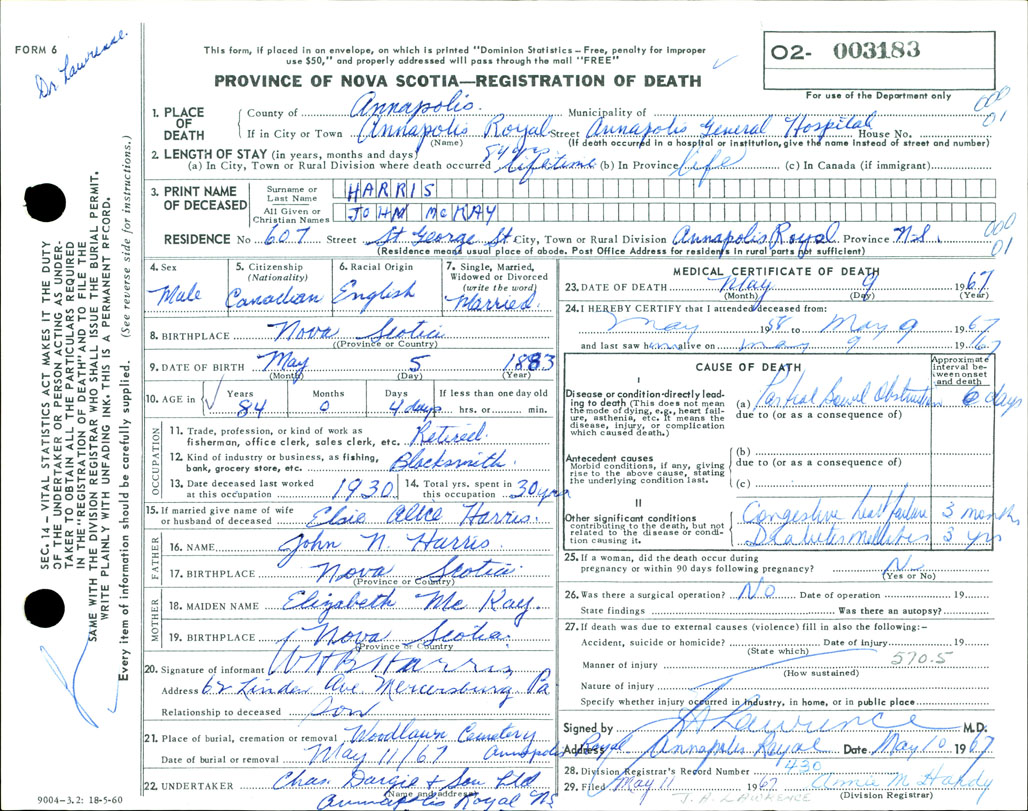 FORM 6
Dr. Lawrence.
This form, if placed in an envelope, on which is printed "Dominion Statistics – Free, penalty for improper
use $50," and properly addressed will pass through the mail "FREE"
O2- 003183
For use of the Department only
PROVINCE OF NOVA SCOTIA—REGISTRATION OF DEATH
000
01
1. PLACE OF DEATH
County of Annapolis. Municipality of
If in City or Town Annapolis Royal Street Annapolis General Hospital House No.
(Name) (If death occurred in a hospital or institution, give the name instead of street and number)
2. LENGTH OF STAY (in years, months and days) 84 yrs
(a) In City, Town or Rural Division where death occurred lifetime (b) In Province Life (c) In Canada (if immigrant)
3. PRINT NAME OF DECEASED
Surname or Last Name HARRIS
All Given or Christian Names JOHN McKAY
RESIDENCE No 607 Street St George St City, Town or Rural Division Annapolis Royal Province N.S.
000
01
(Residence means usual place of abode. Post Office Address for residents in rural parts not sufficient)
4. Sex Male
5. Citizenship (Nationality) Canadian
6. Racial Origin English
7. Single, Married, Widowed or Divorced (write the word) Married.
8. BIRTHPLACE Nova Scotia
(Province or Country)
9. DATE OF BIRTH May 5 1883
(Month) (Day) (Year)
10. AGE in Years 84 Months 0 Days 4 days If less than one day old hrs. or min.
OCCUPATION
11. Trade, profession, or kind of work as
fisherman, office clerk, sales clerk, etc. Retired.
12. Kind of industry or business, as fishing,
bank, grocery store, etc. Blacksmith.
13. Date deceased last worked at this occupation 1930
14. Total yrs. spent in this occupation 30 yrs
15. If married give name of wife
or husband of deceased Elsie Alice Harris.
FATHER
16. NAME John N. Harris
17. BIRTHPLACE Nova Scotia
(Province or Country)
MOTHER
18. MAIDEN NAME Elizabeth McKay.
19. BIRTHPLACE Nova Scotia.
(Province or Country
20. Signature of informant W H B Harris
Address 62 Linden Ave Mercersburg, Pa
Relationship to deceased Son
21. Place of burial, cremation or removal Woodlawn Cemetery
Annapolis Royal
Date of burial or removal May 11/67
22. UNDERTAKER Chas. Dargie & Son Ltd
(Name and address)
Annapolis Royal NS
MEDICAL CERTIFICATE OF DEATH
23. DATE OF DEATH May 9 1967
(Month) (Day) (Year)
24. I HEREBY CERTIFY that I attended deceased from:
May 1958 to May 9 1967
and last saw him alive on May 9 1967
CAUSE OF DEATH
Approximate interval between onset and death
I
Disease or condition directly leading to death (This does not mean the mode of dying, e.g., heart failure, asthenia, etc. It means the disease, injury, or complication which caused death.)
(a) Partial Bowel Obstruction 6 days
due to (or as a consequence of)
Antecedent causes
Morbid conditions, if any, giving rise to the above cause, stating the underlying condition last.
(b)
due to (or as a consequence of)
(c)
II
Other significant conditions
contributing to the death, but not related to the disease or condition causing it.
Congestive heart failure 3 months
Diabetes mellitus 3 yrs
25. If a woman, did the death occur during
pregnancy or within 90 days following pregnancy?
(Yes or No)
26. Was there a surgical operation? No Date of operation 19
State findings Was there an autopsy?
27. If death was due to external causes (violence) fill in also the following:–
Accident, suicide or homicide? Date of injury 19
(State which)
570.5
Manner of injury
(How sustained)
Nature of injury
Specify whether injury occurred in industry, in home, or in public place
Signed by Lawrence M.D.
Address Annapolis Royal Date May 10 1967
28. Division Registrar's Record Number 430
29. Filed May 11 1967 Annie M Hardy
J. A. LAWRENCE (Division Registrar)
SEC. 14 – VITAL STATISTICS ACT MAKES IT THE DUTY
OF THE UNDERTAKER OR PERSON ACTING AS UNDER-
TAKER TO OBTAIN ALL THE PARTICULARS REQUIRED
IN THE "REGISTRATION OF DEATH" AND TO FILE THE
SAME WITH THE DIVISION REGISTRAR WHO SHALL ISSUE THE BURIAL PERMIT.
WRITE PLAINLY WITH UNFADING INK. THIS IS A PERMANENT RECORD.
Every item of information should be carefully supplied. (See reverse side for instructions.)
9004–3.2: 18-5-60